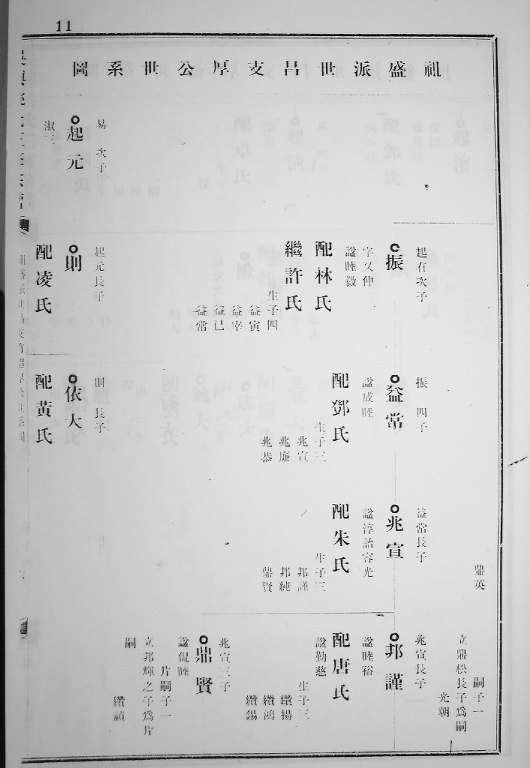 11
祖盛派世昌支厚公世系圖
鼎英
嗣子一
光朝
立鼎松長子為嗣
起有次子
振
字又伸
諡睦毅
配林氏
繼許氏
生子四
益寅
益宰
益已
益常
振 四子
益常
諡成睦
配鄧氏
生子三
兆宣
兆廉
兆恭
益常長子
兆宣
諡淳詒容光
配朱氏
生子三
邦謹
邦純
鼎賢
兆宣長子
邦謹
諡睦裕
配唐氏
諡勤慈
生子三
纘揚
纘鴻
纘錫
兆宣三子
鼎賢
諡侃睦
片嗣子一
立邦輝之子為片
嗣
纘禎
易 次子
起元
淑
起元長子
則
配凌氏
則 長子
依大
配黃氏